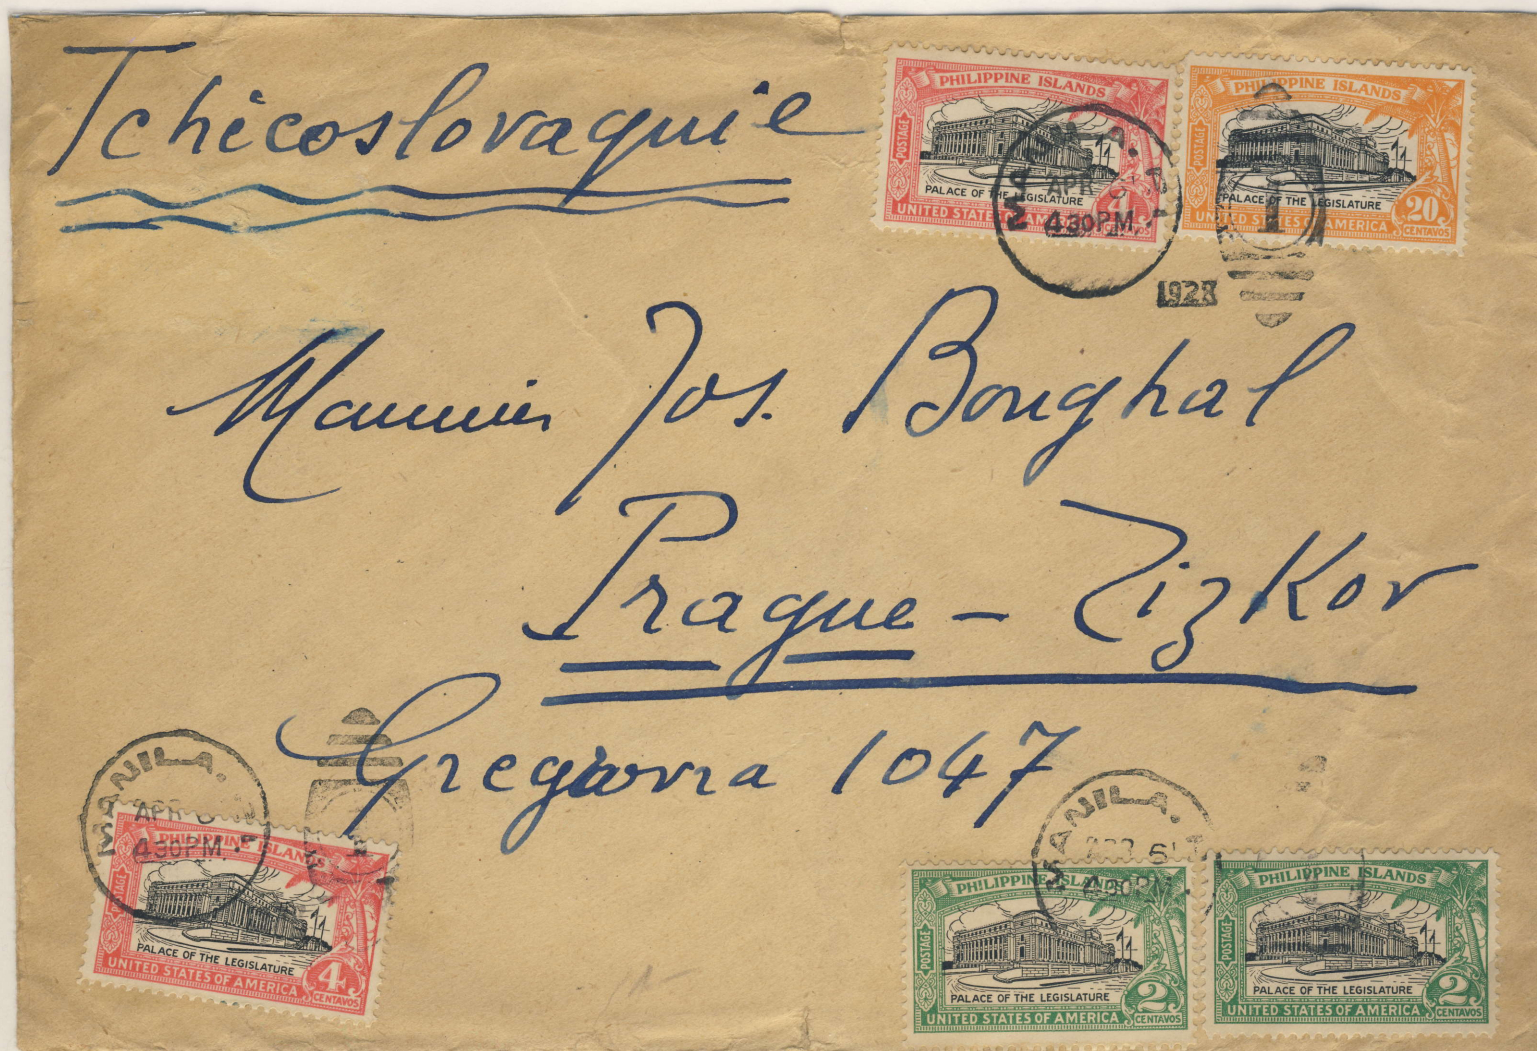 Tchécoslovaquie
PHILIPPINE ISLANDS
POSTAGE
PALACE OF THE LEGISLATURE
4
UNITED STATES OF AMERICA
CENTAVOS
PHILIPPINE ISLANDS
POSTAGE
PALACE OF THE LEGISLATURE
20
UNITED STATES OF AMERICA
CENTAVOS
MANILA. P.I.
APR 6
4 30 PM
1
1928
Jos. Bonghal
Prague – Zizkov
Gregorova 1047
MANILA. P.I.
APR 6
4 30 PM.
PHILIPPINE ISLANDS
POSTAGE
PALACE OF THE LEGISLATURE
4
UNITED STATES OF AMERICA
CENTAVOS
MANILA. P.I.
APR 6
4 30 PM.
PHILIPPINE ISLANDS
POSTAGE
PALACE OF THE LEGISLATURE
2
UNITED STATES OF AMERICA
CENTAVOS
PHILIPPINE ISLANDS
POSTAGE
PALACE OF THE LEGISLATURE
2
UNITED STATES OF AMERICA
CENTAVOS